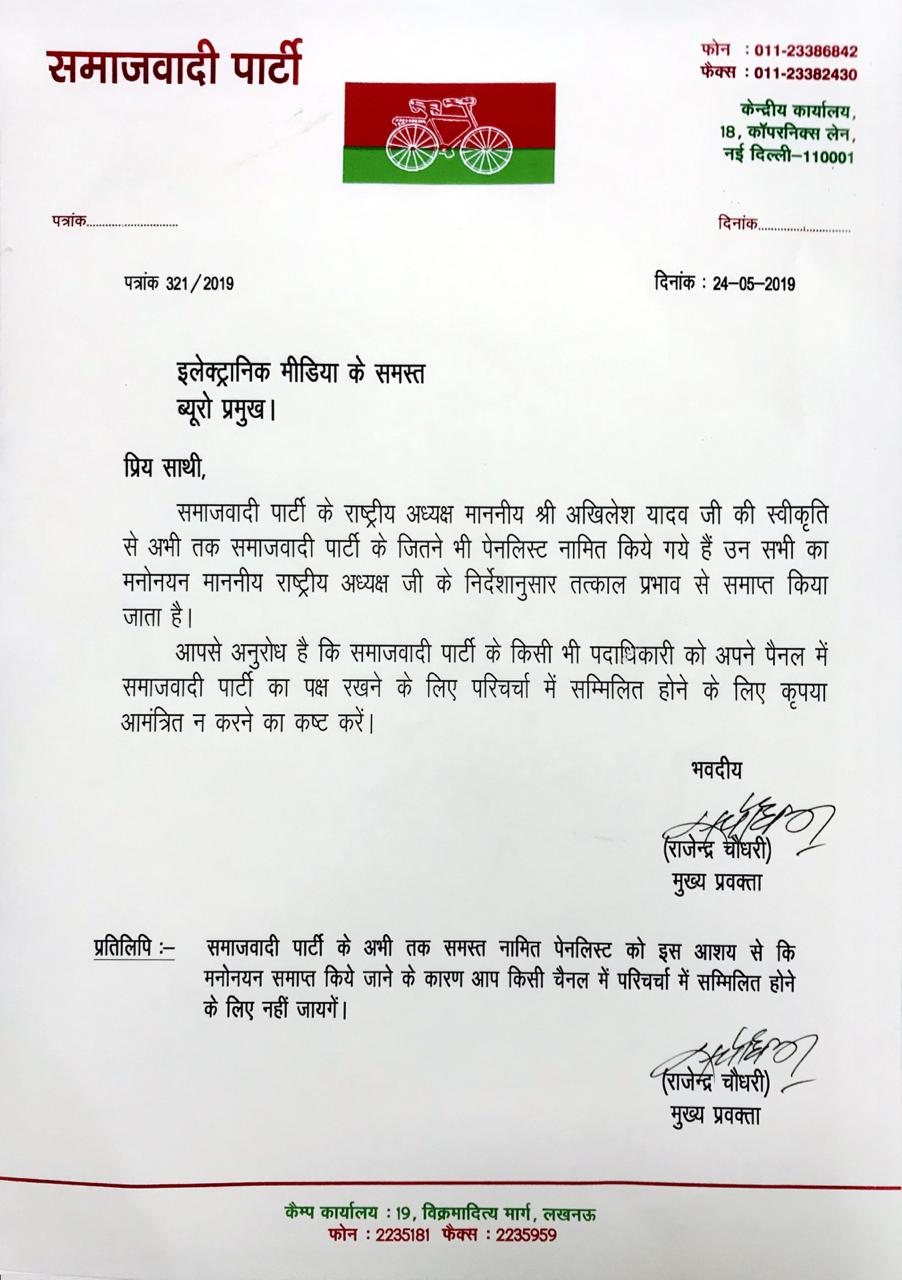 समाजवादी पार्टी
फोन : 011-23386842
फैक्स : 011-23382430
केन्द्रीय कार्यालय,
18, कॉपरनिक्स लेन,
नई दिल्ली–110001
पत्रांक..............................
दिनांक..............................
पत्रांक 321/2019
दिनांक : 24-05-2019
इलेक्ट्रानिक मीडिया के समस्त
ब्यूरो प्रमुख।
प्रिय साथी,
समाजवादी पार्टी के राष्ट्रीय अध्यक्ष माननीय श्री अखिलेश यादव जी की स्वीकृति
से अभी तक समाजवादी पार्टी के जितने भी पेनलिस्ट नामित किये गये हैं उन सभी का
मनोनयन माननीय राष्ट्रीय अध्यक्ष जी के निर्देशानुसार तत्काल प्रभाव से समाप्त किया
जाता है।
आपसे अनुरोध है कि समाजवादी पार्टी के किसी भी पदाधिकारी को अपने पैनल में
समाजवादी पार्टी का पक्ष रखने के लिए परिचर्चा में सम्मिलित होने के लिए कृपया
आमंत्रित न करने का कष्ट करें।
भवदीय
(राजेन्द्र चौधरी)
मुख्य प्रवक्ता
प्रतिलिपि :– समाजवादी पार्टी के अभी तक समस्त नामित पेनलिस्ट को इस आशय से कि
मनोनयन समाप्त किये जाने के कारण आप किसी चैनल में परिचर्चा में सम्मिलित होने
के लिए नहीं जायगें।
(राजेन्द्र चौधरी)
मुख्य प्रवक्ता
कैम्प कार्यालय : 19, विक्रमादित्य मार्ग, लखनऊ
फोन : 2235181 फैक्स : 2235959